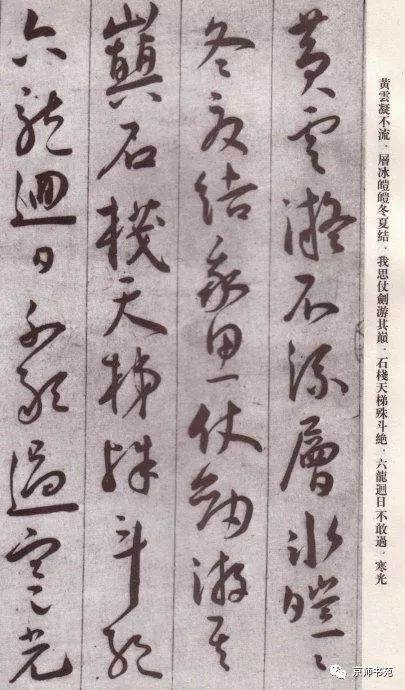 黃雲凝不流．層冰皚皚冬夏結．我思仗劍游其巔．石棧天梯殊斗絶．六龍迴日不敢過．寒光
黃雲凝不流層冰皚〻
冬夏結我思仗劍游其
巔石棧天梯殊斗絶
六龍迴日不敢過寒光
京师书苑